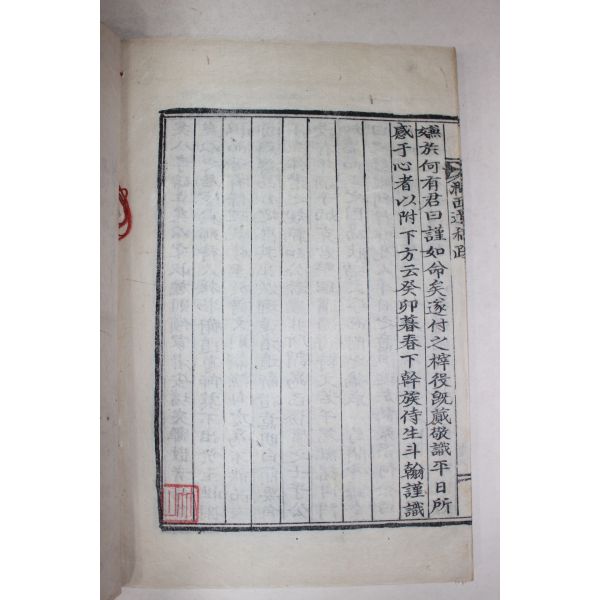 嫌於何有君曰謹如命矣遂付之梓役旣蕆敬識平日所
感于心者以附下方云癸卯暮春下幹族侍生斗翰謹識